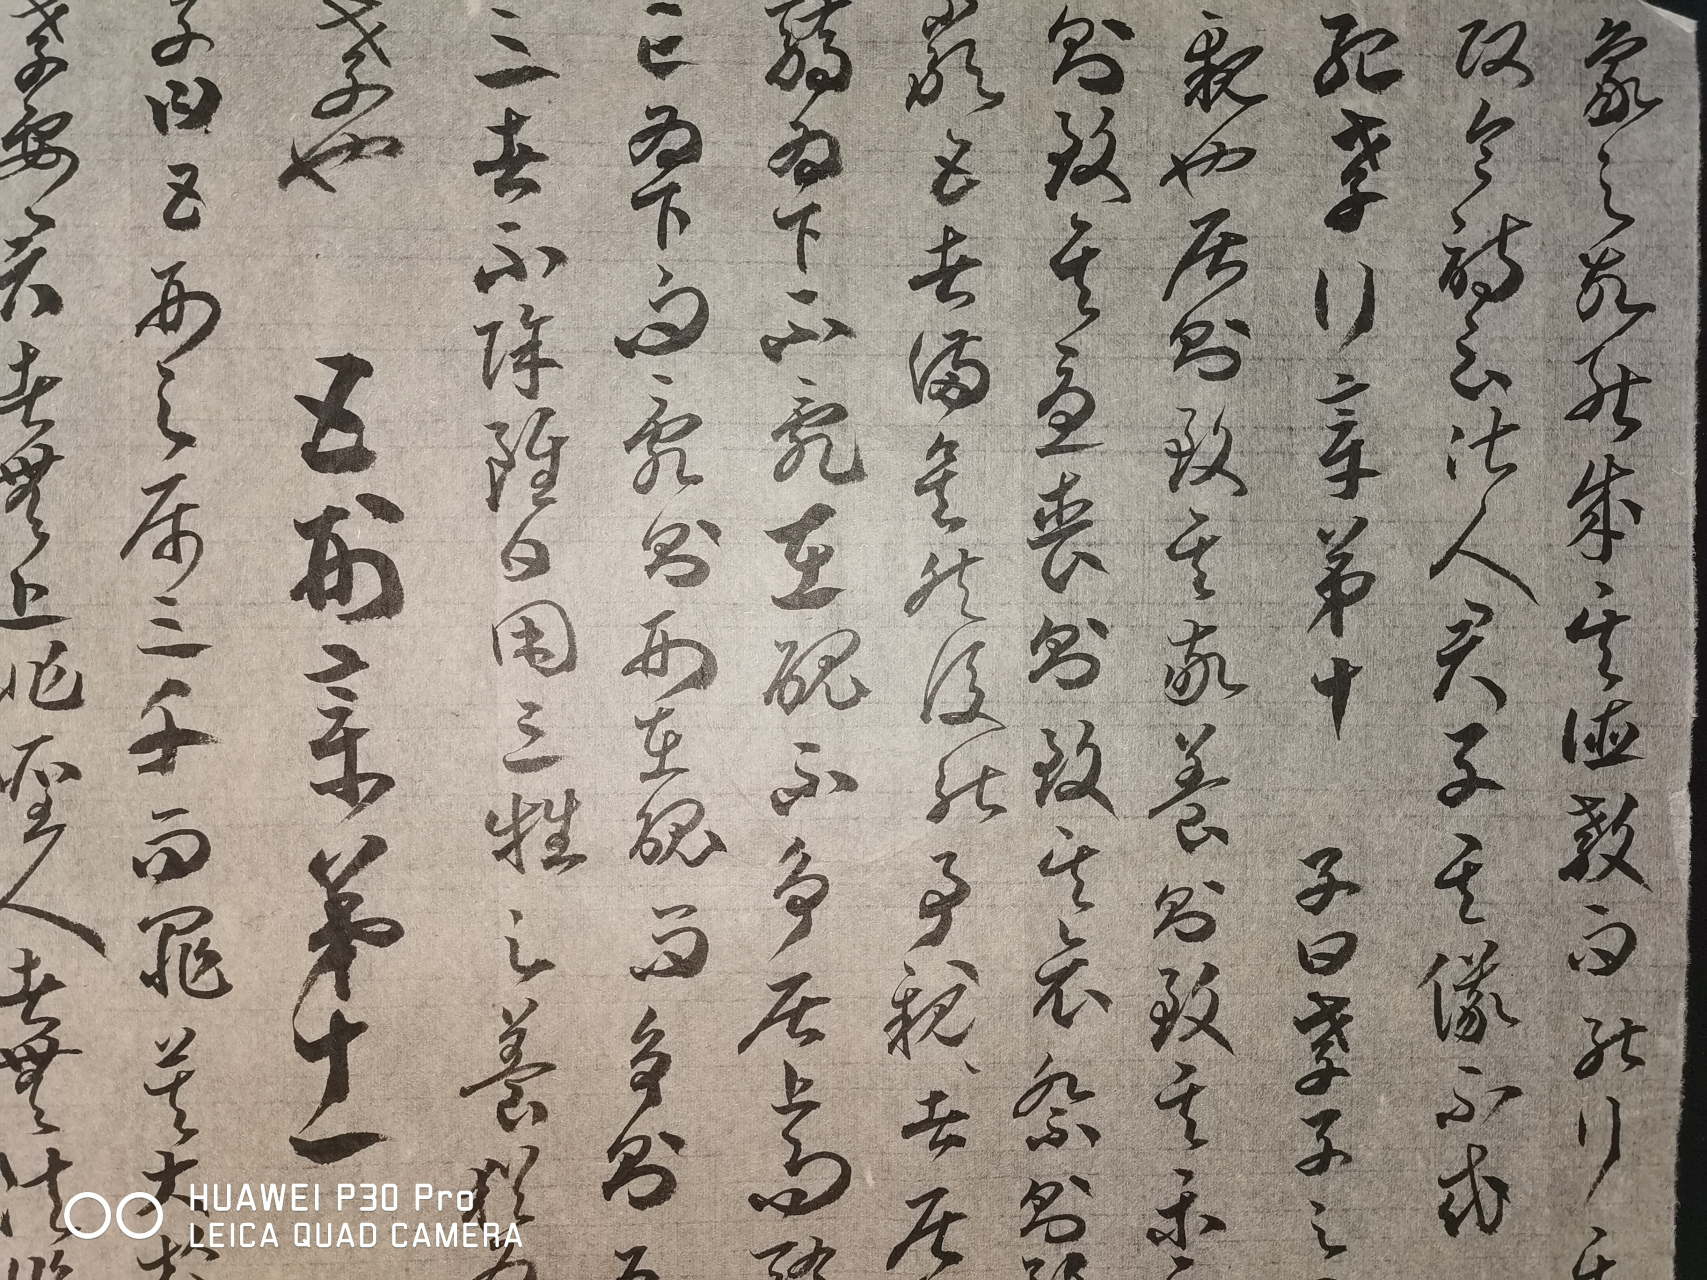 象之故能成其德教而能行其
政令詩云淑人君子其儀不忒
紀孝行章第十 子曰孝子之
親也居則致其敬養則致其樂
則致其憂喪則致其哀祭則致
嚴五者備矣然後能事親、者居
驕為下不亂在醜不爭居上而驕
亡為下而亂則刑在醜而爭則兵
三者不除雖日用三牲之養猶為
孝也 五刑章第十一
子曰五刑之屬三千而罪莫大於
孝要君者無上非聖人者無法非
HUAWEI P30 Pro
LEICA QUAD CAMERA